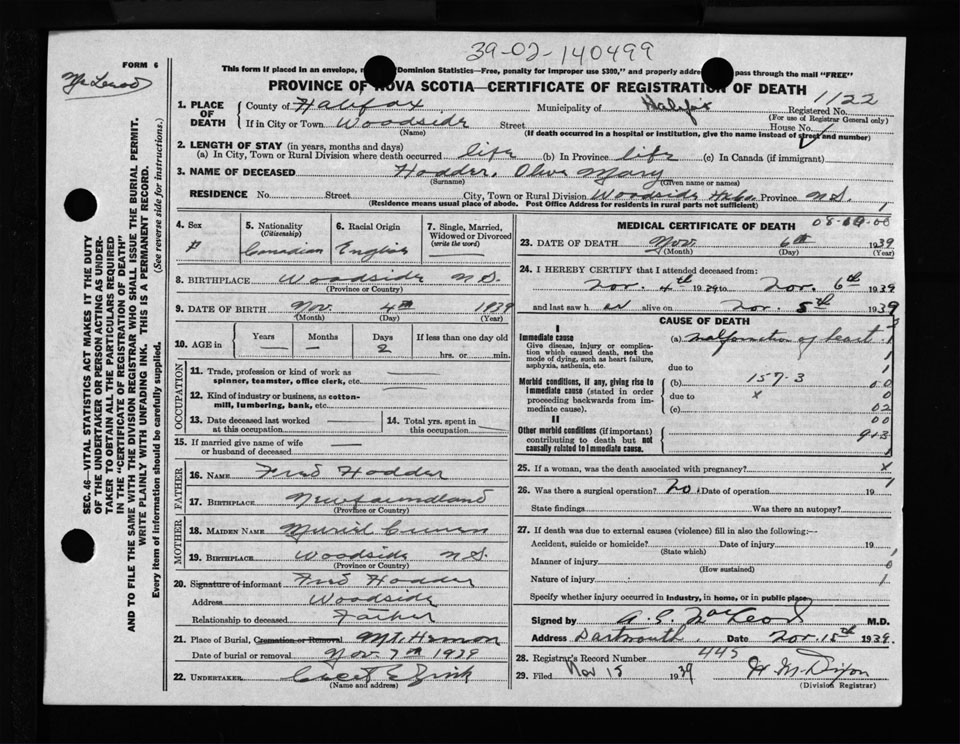 39-02-140499
FORM 6
McLeod
This form if placed in an envelope, Dominion Statistics—Free, penalty for improper use $300," and properly addre pass through the mail "FREE"
PROVINCE OF NOVA SCOTIA—CERTIFICATE OF REGISTRATION OF DEATH
1122
1. PLACE OF DEATH County of Halifax Municipality of Halifax Registered No.
(For use of Registrar General only)
If in City or Town Woodside Street House No.
(Name) (If death occurred in a hospital or institution, give the name instead of street and number)
2. LENGTH OF STAY (in years, months and days)
(a) In City, Town or Rural Division where death occurred life (b) In Province life (c) In Canada (if immigrant)
3. NAME OF DECEASED Hodder, Olive Mary
(Surname) (Given name or names)
RESIDENCE No. Street City, Town or Rural Division Woodside Province N.S.
(Residence means usual place of abode. Post Office Address for residents in rural parts not sufficient) 1
SEC. 46—VITAL STATISTICS ACT MAKES IT THE DUTY
OF THE UNDERTAKER OR PERSON ACTING AS UNDER-
TAKER TO OBTAIN ALL THE PARTICULARS REQUIRED
IN THE "CERTIFICATE OF REGISTRATION OF DEATH"
AND TO FILE THE SAME WITH THE DIVISION REGISTRAR WHO SHALL ISSUE THE BURIAL PERMIT.
WRITE PLAINLY WITH UNFADING INK. THIS IS A PERMANENT RECORD.
Every item of information should be carefully supplied. (See reverse side for instructions.)
4. Sex 5. Nationality (Citizenship) 6. Racial Origin 7. Single, Married, Widowed or Divorced (write the word)
F Canadian English
8. BIRTHPLACE Woodside N.S.
(Province or Country)
9. DATE OF BIRTH Nov. 4th 1939
(Month) (Day) (Year)
10. AGE in Years Months Days If less than one day
— — 2 hrs. or min.
OCCUPATION
11. Trade, profession or kind of work as
spinner, teamster, office clerk, etc.
12. Kind of industry or business, as cotton-
mill, lumbering, bank, etc.
13. Date deceased last worked at this occupation
14. Total yrs. spent in this occupation
15. If married give name of wife
or husband of deceased
FATHER
16. NAME Fred Hodder
17. BIRTHPLACE Newfoundland
(Province or Country)
MOTHER
18. MAIDEN NAME Muriel
19. BIRTHPLACE Woodside N.S.
(Province or Country)
20. Signature of informant Fred Hodder
Address Woodside
Relationship to deceased Father
21. Place of Burial, Cremation or Removal Mt. Hermon
Date of burial or removal Nov. 7th 1939
22. UNDERTAKER Cecil E Zink
(Name and address)
MEDICAL CERTIFICATE OF DEATH
23. DATE OF DEATH Nov. 6th 1939
(Month) (Day) (Year)
24. I HEREBY CERTIFY that I attended deceased from:
Nov. 4th 1939 to Nov. 6th 1939
and last saw h er alive on Nov. 5th 1939
CAUSE OF DEATH
I
Immediate cause (a) Malformation of heart
Give disease, injury or complica-
tion which caused death, not the
mode of dying, such as heart failure,
asphyxia, asthenia, etc. due to
Morbid conditions, if any, giving rise to
immediate cause (stated in order
proceeding backwards from im-
mediate cause).
(b) 157.3
due to x
(c)
II
Other morbid conditions (if important)
contributing to death but not
causally related to immediate cause.
25. If a woman, was the death associated with pregnancy? x
26. Was there a surgical operation? no. Date of operation 19
State findings Was there an autopsy?
27. If death was due to external causes (violence) fill in also the following:—
Accident, suicide or homicide? Date of injury 19
(State which)
Manner of injury
(How sustained)
Nature of injury
Specify whether injury occurred in industry, in home, or in public place
Signed by MacLeod M.D.
Address Dartmouth. Date Nov. 15th 1939.
28. Registrar's Record Number 445
29. Filed Nov 15 1939 Dixon
(Division Registrar)